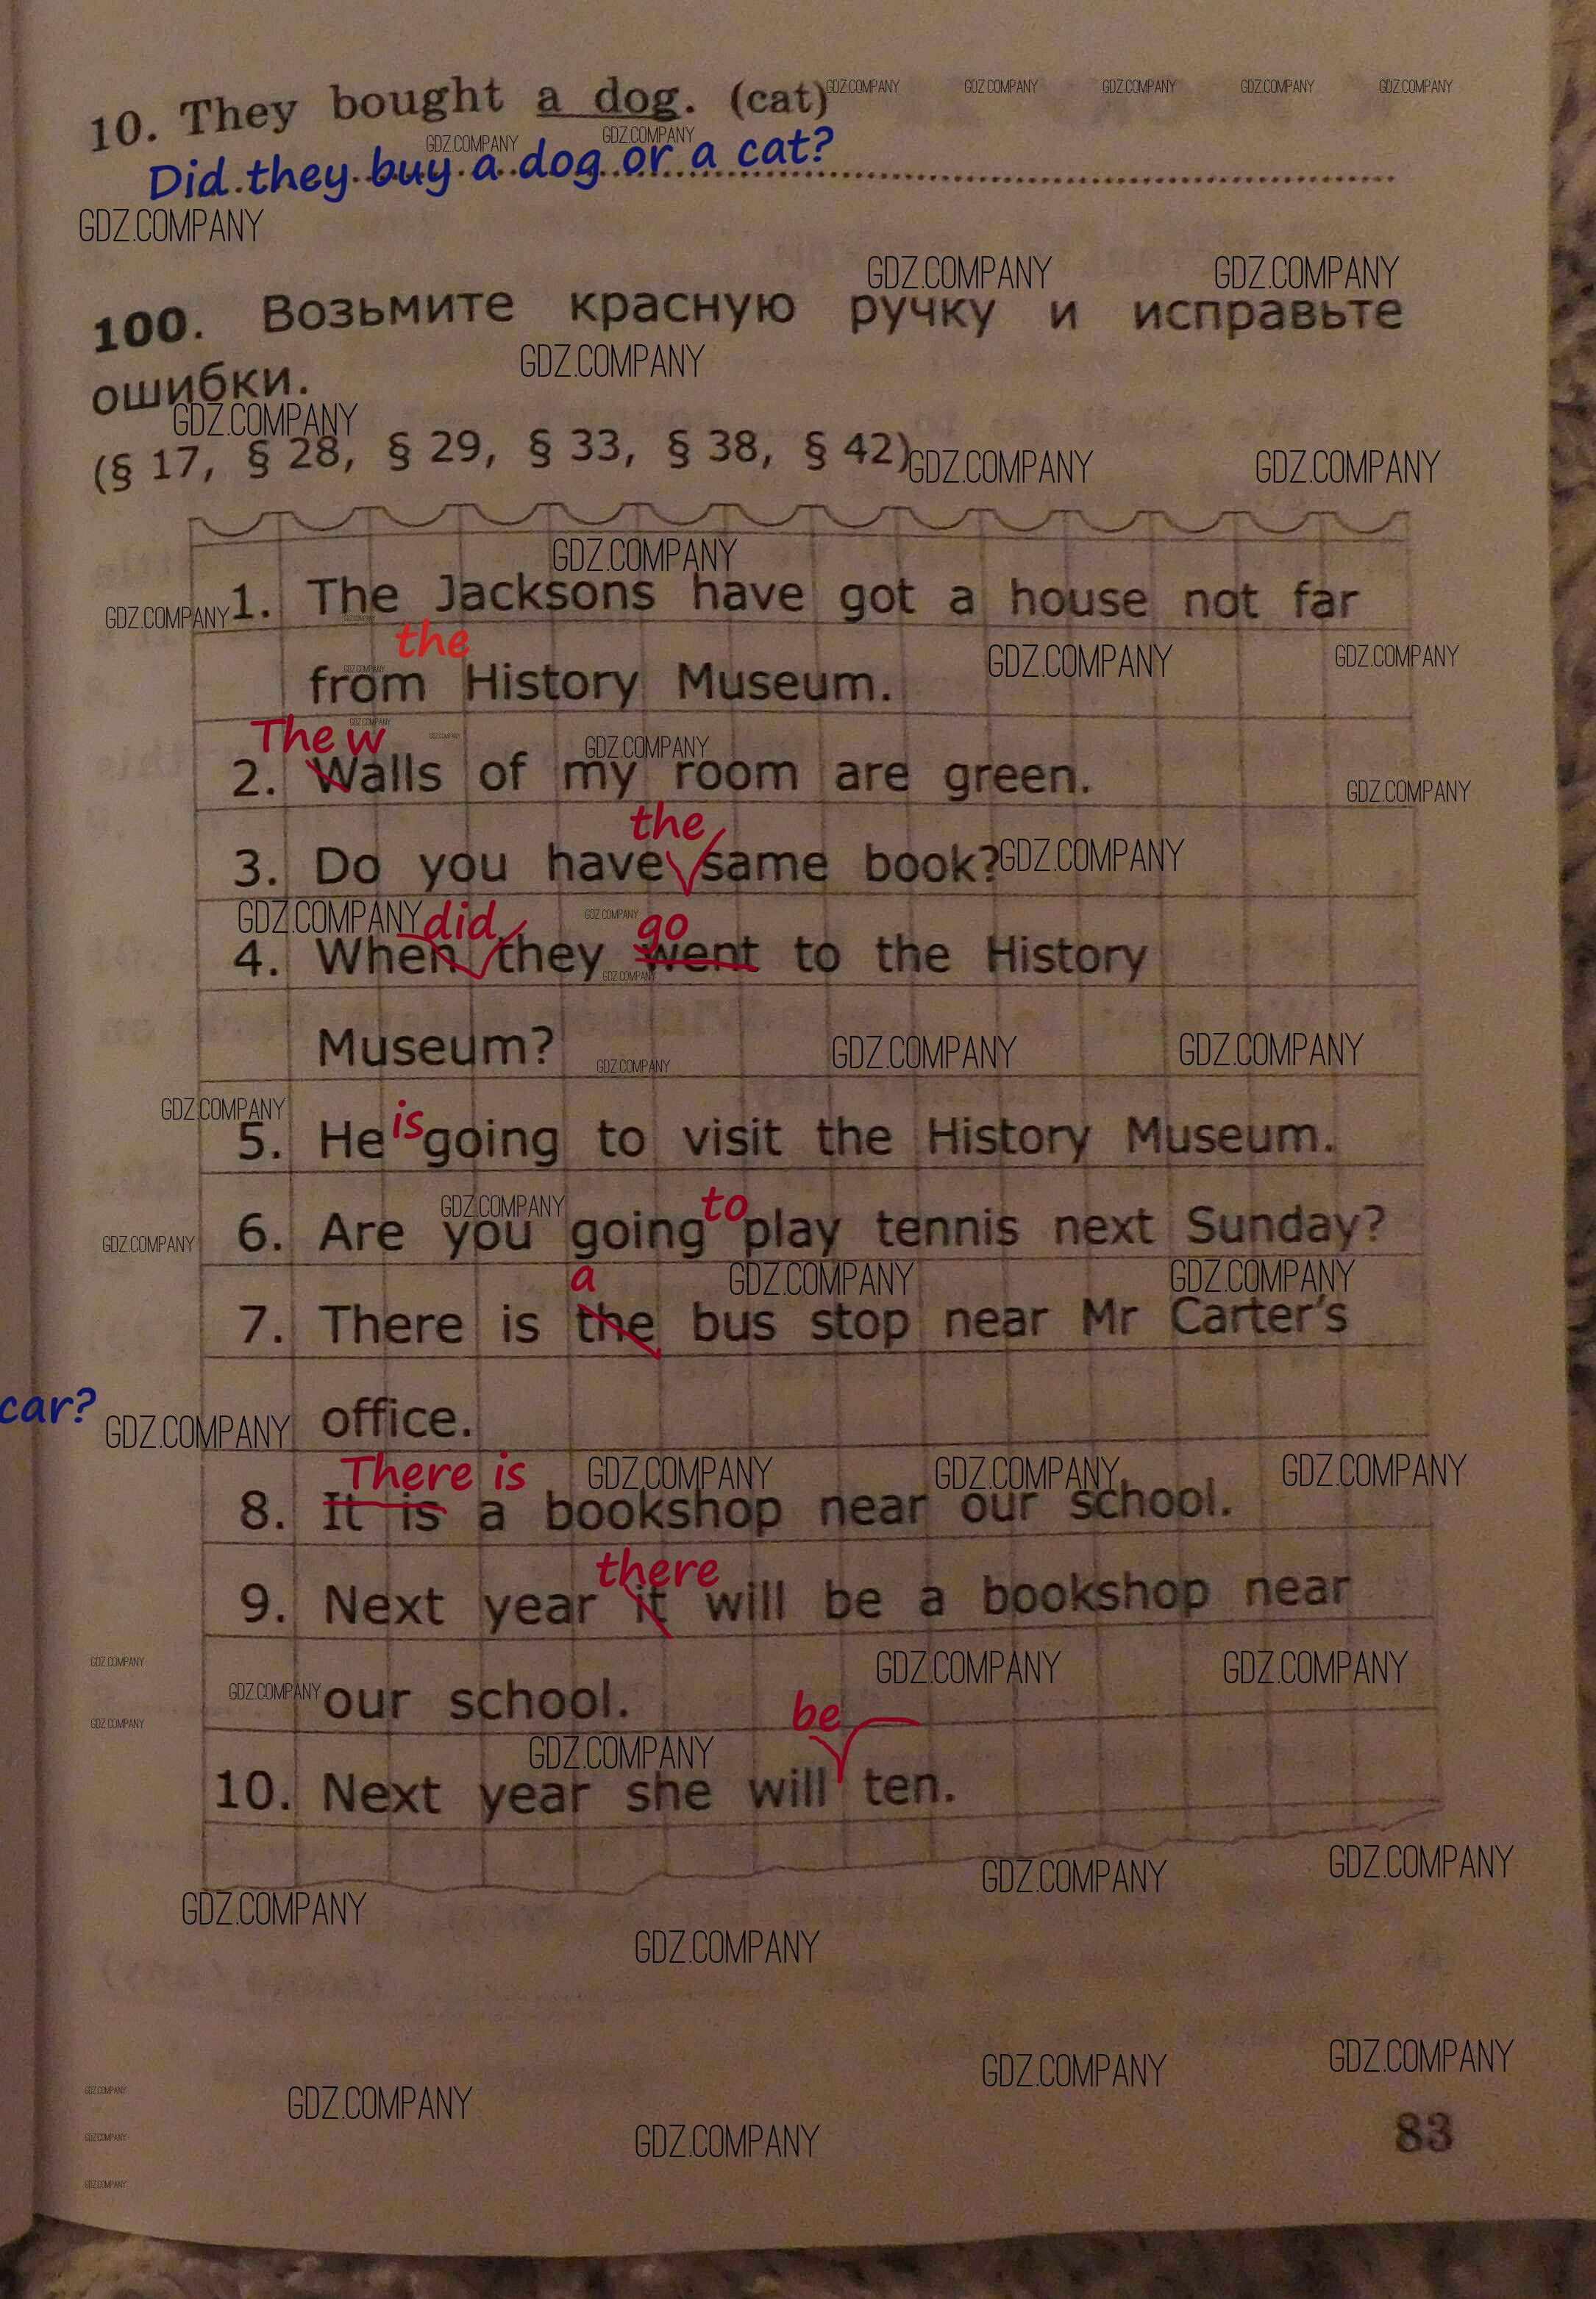 10. They bought a dog. (cat)
Did they buy a dog or a cat?
100. Возьмите красную ручку и исправьте
ошибки.
(§ 17, § 28, § 29, § 33, § 38, § 42)
1. The Jacksons have got a house not far
the
from History Museum.
The w
2. Walls of my room are green.
the
3. Do you have same book?
did go
4. When they went to the History
Museum?
5. He is going to visit the History Museum.
6. Are you going to play tennis next Sunday?
a
7. There is the bus stop near Mr Carter's
car?
office.
There is
8. It is a bookshop near our school.
there
9. Next year it will be a bookshop near
our school.
be
10. Next year she will ten.
83
GDZ.COMPANY